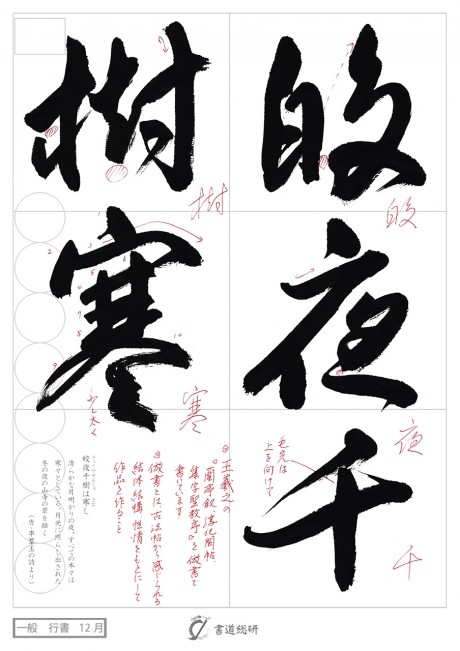 皎夜千
樹寒
皎
夜
千
樹
寒
毛先は
上を向けて
少し太く
◎王羲之の
『蘭亭叙、淳化閣帖、
集字聖教序』を倣書で
書いています
◎倣書とは古法帖から感じられる
結体、結構、性情をもとにして
作品を作ること
皎夜千樹は寒し
清らかな月明かりの夜、すべての木々は
寒々としている。月光に照らし出された
冬の夜の山寺の景を描く
(唐・李羣玉の詩より)
一般 行書 12月
書道総研